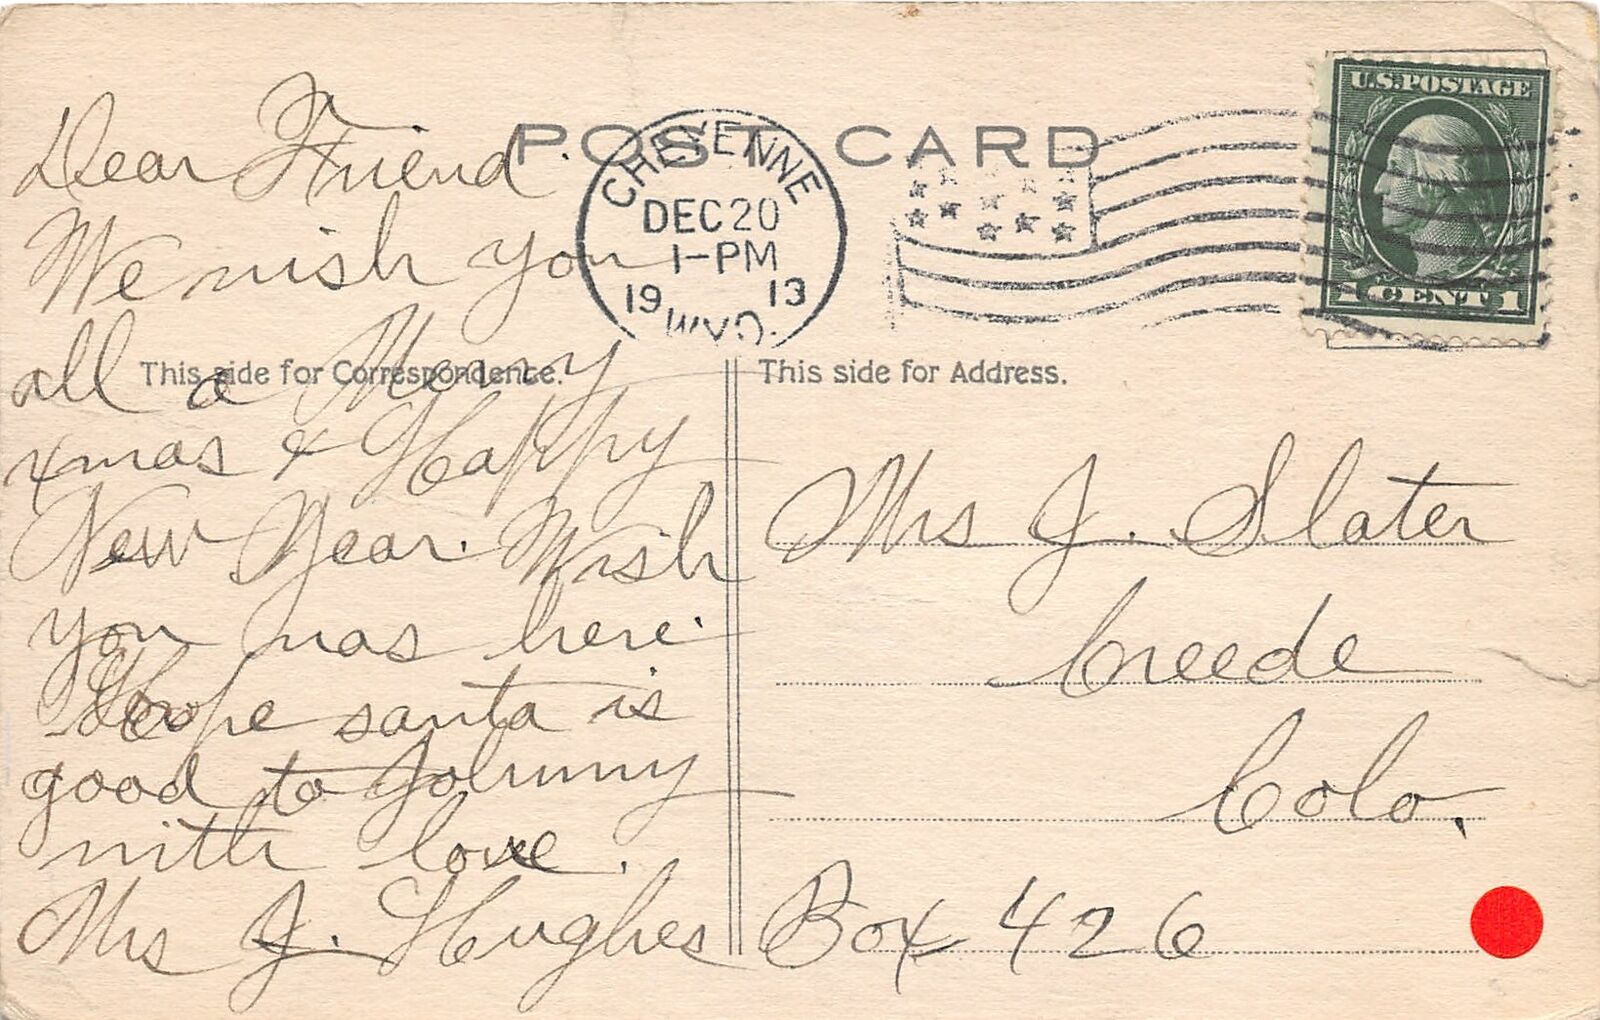 POST CARD
U.S. POSTAGE
1 CENT 1
CHEYENNE
DEC 20
1-PM
19 13
WYO.
This side for Correspondence.
This side for Address.
Dear Friend
We wish you
all a Merry
xmas & Happy
New Year. Wish
you was here.
Hope santa is
good to Johnny
with love.
Mrs J. Hughes
Mrs J. Slater
Creede
Colo.
Box 426